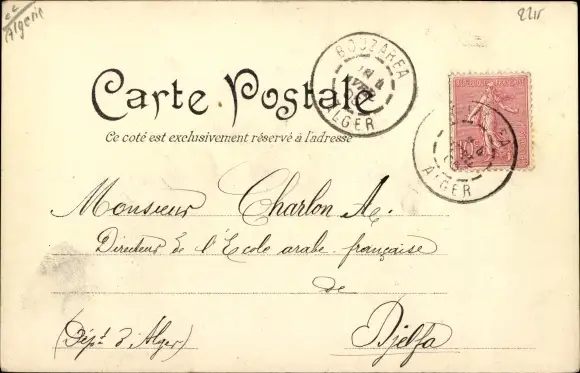 cc
Algerie
2215
Carte Postale
Ce côté est exclusivement réservé à l'adresse
BOUZAREA
ALGER
ALGER
Monsieur Charlon A.
Directeur de l'École arabe-française
de
(Dépt d'Alger) Djelfa